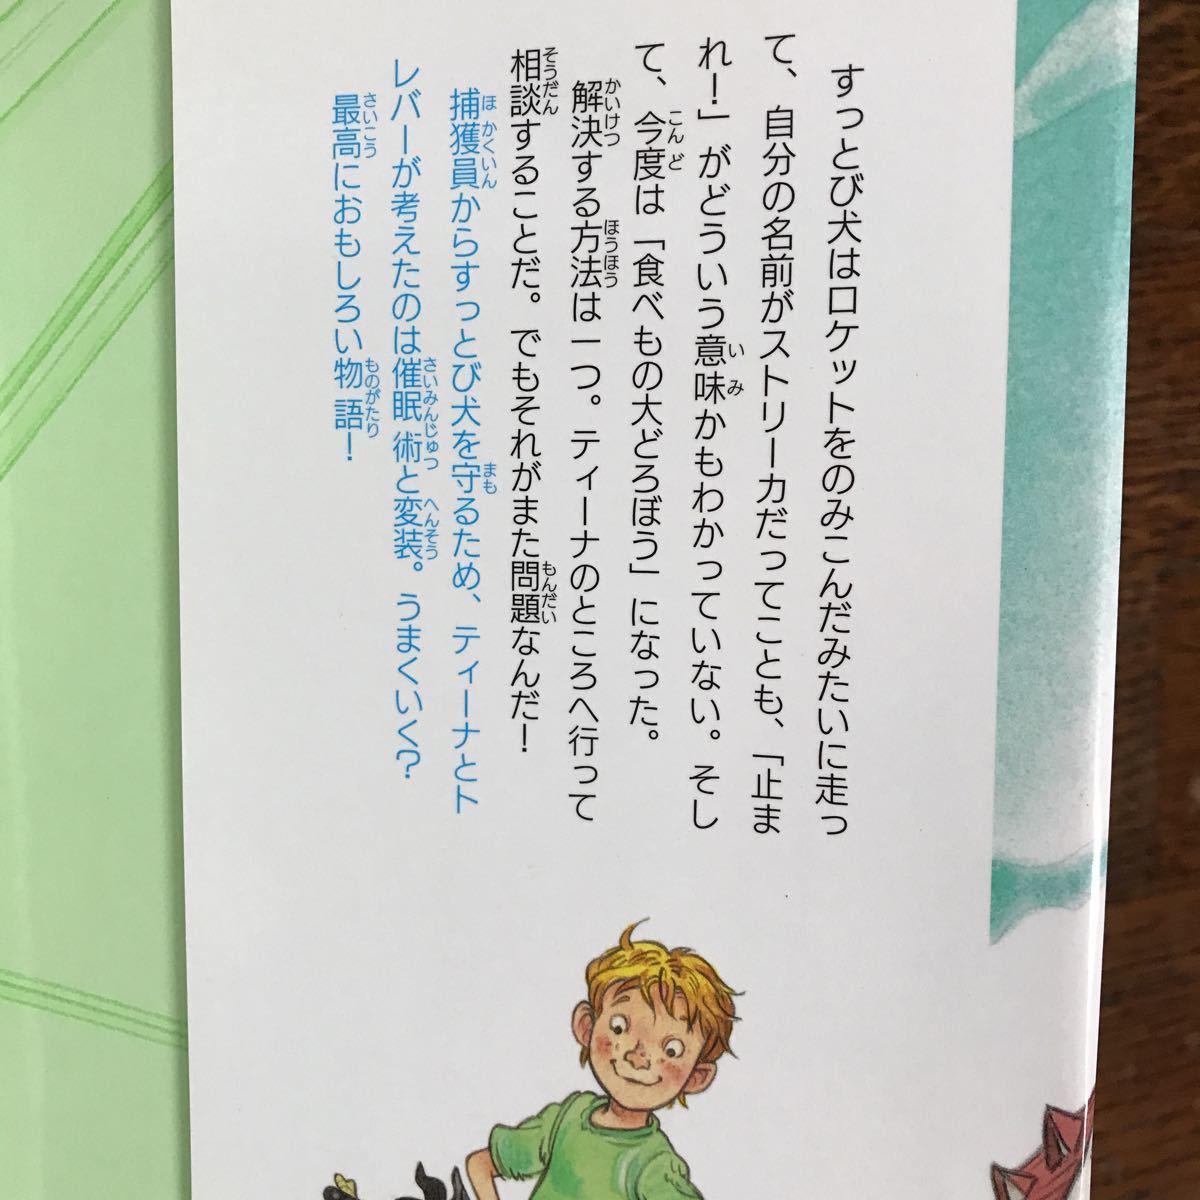 すっとび犬はロケットをのみこんだみたいに走っ
て、自分の名前がストリーカだってことも、「止ま
れ!」がどういう意味かもわかっていない。そし
て、今度は「食べもの大どろぼう」になった。
解決する方法は一つ。ティーナのところへ行って
相談することだ。でもそれがまた問題なんだ!
捕獲員からすっとび犬を守るため、ティーナとト
レバーが考えたのは催眠術と変装。うまくいく?
最高におもしろい物語!